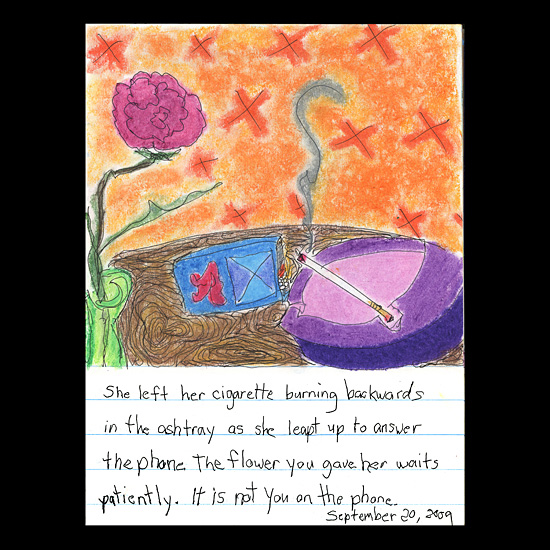 She left her cigarette burning backwards
in the ashtray as she leapt up to answer
the phone. The flower you gave her waits
patiently. It is not you on the phone.
September 20, 2009